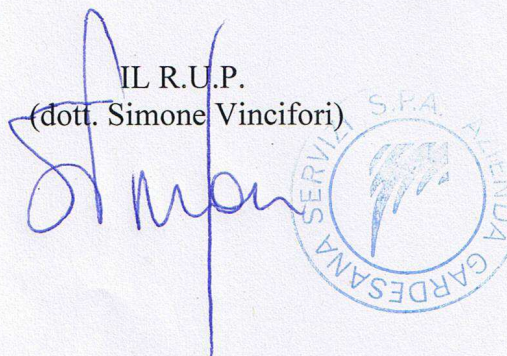 IL R.U.P.
(dott. Simone Vincifori)
AZIENDA GARDESANA SERVIZI S.P.A.